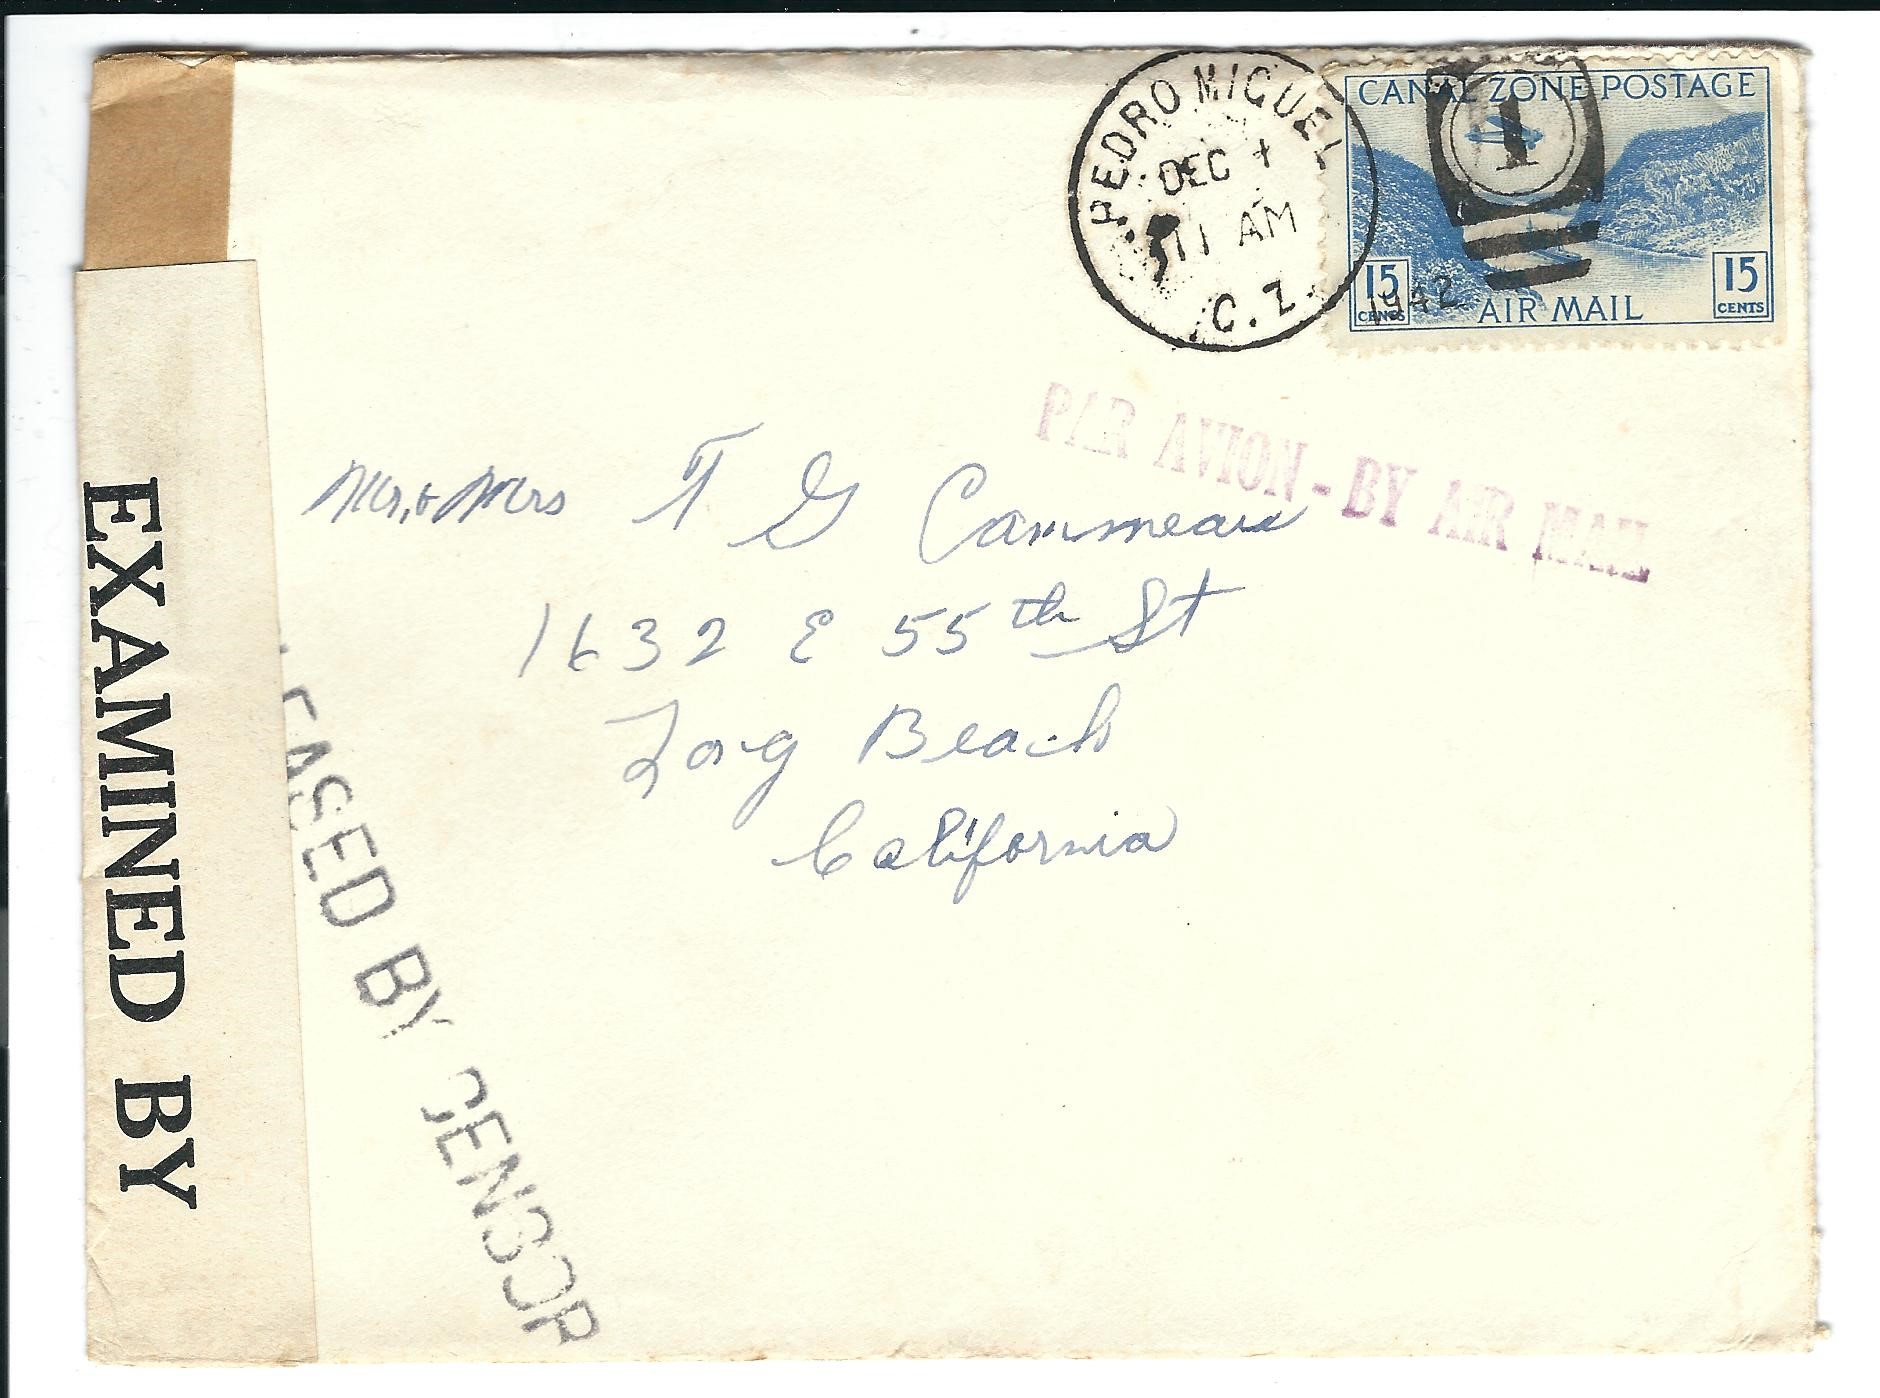 PEDRO MIGUEL
DEC
11 AM
C. Z.
CANAL ZONE POSTAGE
1
15 CENTS
AIR MAIL
15 CENTS
1942
PAR AVION - BY AIR MAIL
Mr. & Mrs T G
1632 E 55th St
Long Beach
California
EXAMINED BY
EASED BY CENSOR